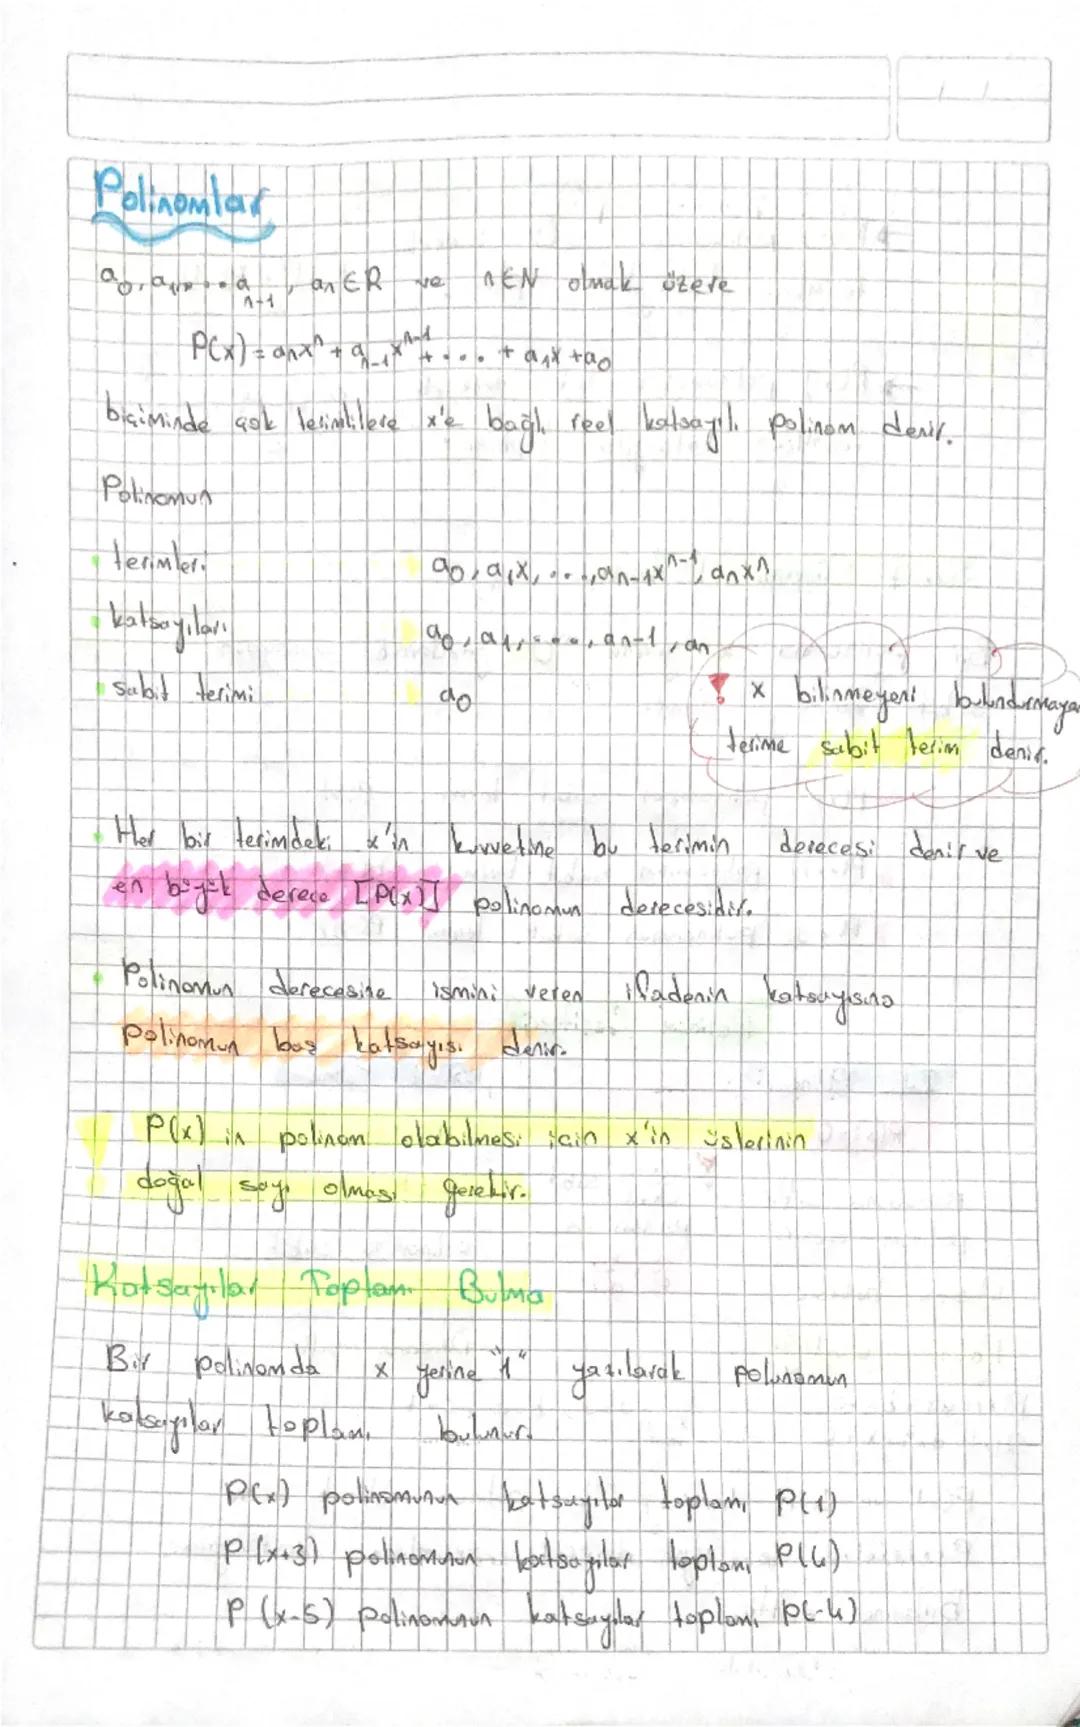 Polinomlar
a₀, a₁, ... a_{n-1}, aₙ ∈ R ve n ∈ N olmak üzere
P(x) = aₙxⁿ + a_{n-1}x^{n-1} + ... + a₁x + a₀
biçiminde çok terimlilere x'e bağlı reel katsayılı polinom denir.
Polinomun
terimleri a₀, a₁x, ..., a_{n-1}x^{n-1}, aₙxⁿ
katsayıları a₀, a₁, ..., a_{n-1}, aₙ
sabit terimi a₀
! x bilinmeyeni bulundurmaya
terime sabit terim denir.
Her bir terimdeki x'in kuvvetine bu terimin derecesi denir ve
en büyük derece [P(x)] polinomun derecesidir.
Polinomun derecesine ismini veren ifadenin katsayısına
polinomun baş katsayısı denir.
! P(x) in polinom olabilmesi için x'in üslerinin
doğal sayı olması gerekir.
Katsayılar Toplamı Bulma
Bir polinomda x yerine "1" yazılarak polunomun
katsayılar toplamı bulunur.
P(x) polinomunun katsayılar toplamı P(1)
P(x+3) polinomunun katsayılar toplamı P(4)
P(x-5) polinomunun katsayılar toplamı P(-4)